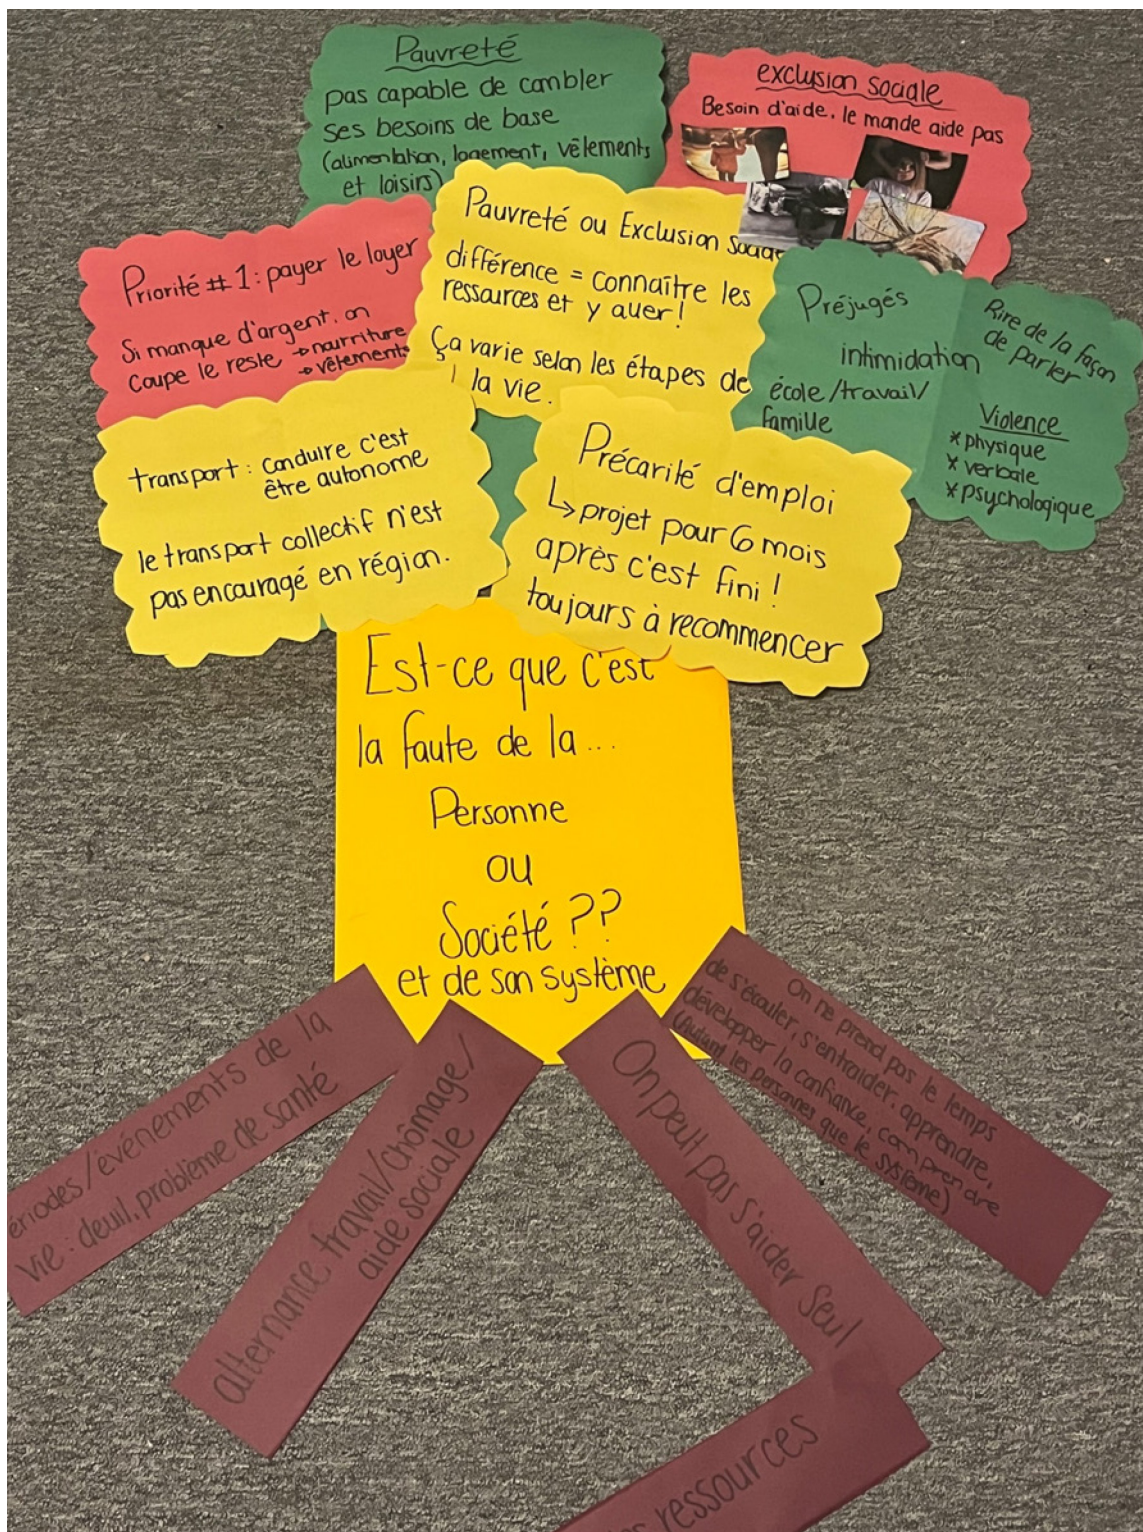 Pauvreté
pas capable de combler
ses besoins de base
(alimentation, logement, vêtements
et loisirs)
exclusion sociale
Besoin d'aide. le monde aide pas
Priorité # 1 : payer le loyer
Si manque d'argent. on
coupe le reste → nourriture
→ vêtements
Pauvreté ou Exclusion
différence = connaître les
ressources et y aller !
Ça varie selon les étapes de
la vie.
Préjugés
intimidation
école /travail/
famille
Rire de la façon
de parler
Violence
* physique
* verbale
* psychologique
transport : conduire c'est
être autonome
le transport collectif n'est
pas encouragé en région.
Précarité d'emploi
↳ projet pour 6 mois
après c'est fini !
toujours à recommencer
Est-ce que c'est
la faute de la ...
Personne
ou
Société ??
et de son système
ériodes / événements de la
vie : deuil, problème de santé
alternance travail/chômage/
aide sociale
On peut pas s'aider seul
On ne prend pas le temps
de s'écouter, s'entraider, apprendre,
développer la confiance, comprendre
(Autant les personnes que le système)
ressources